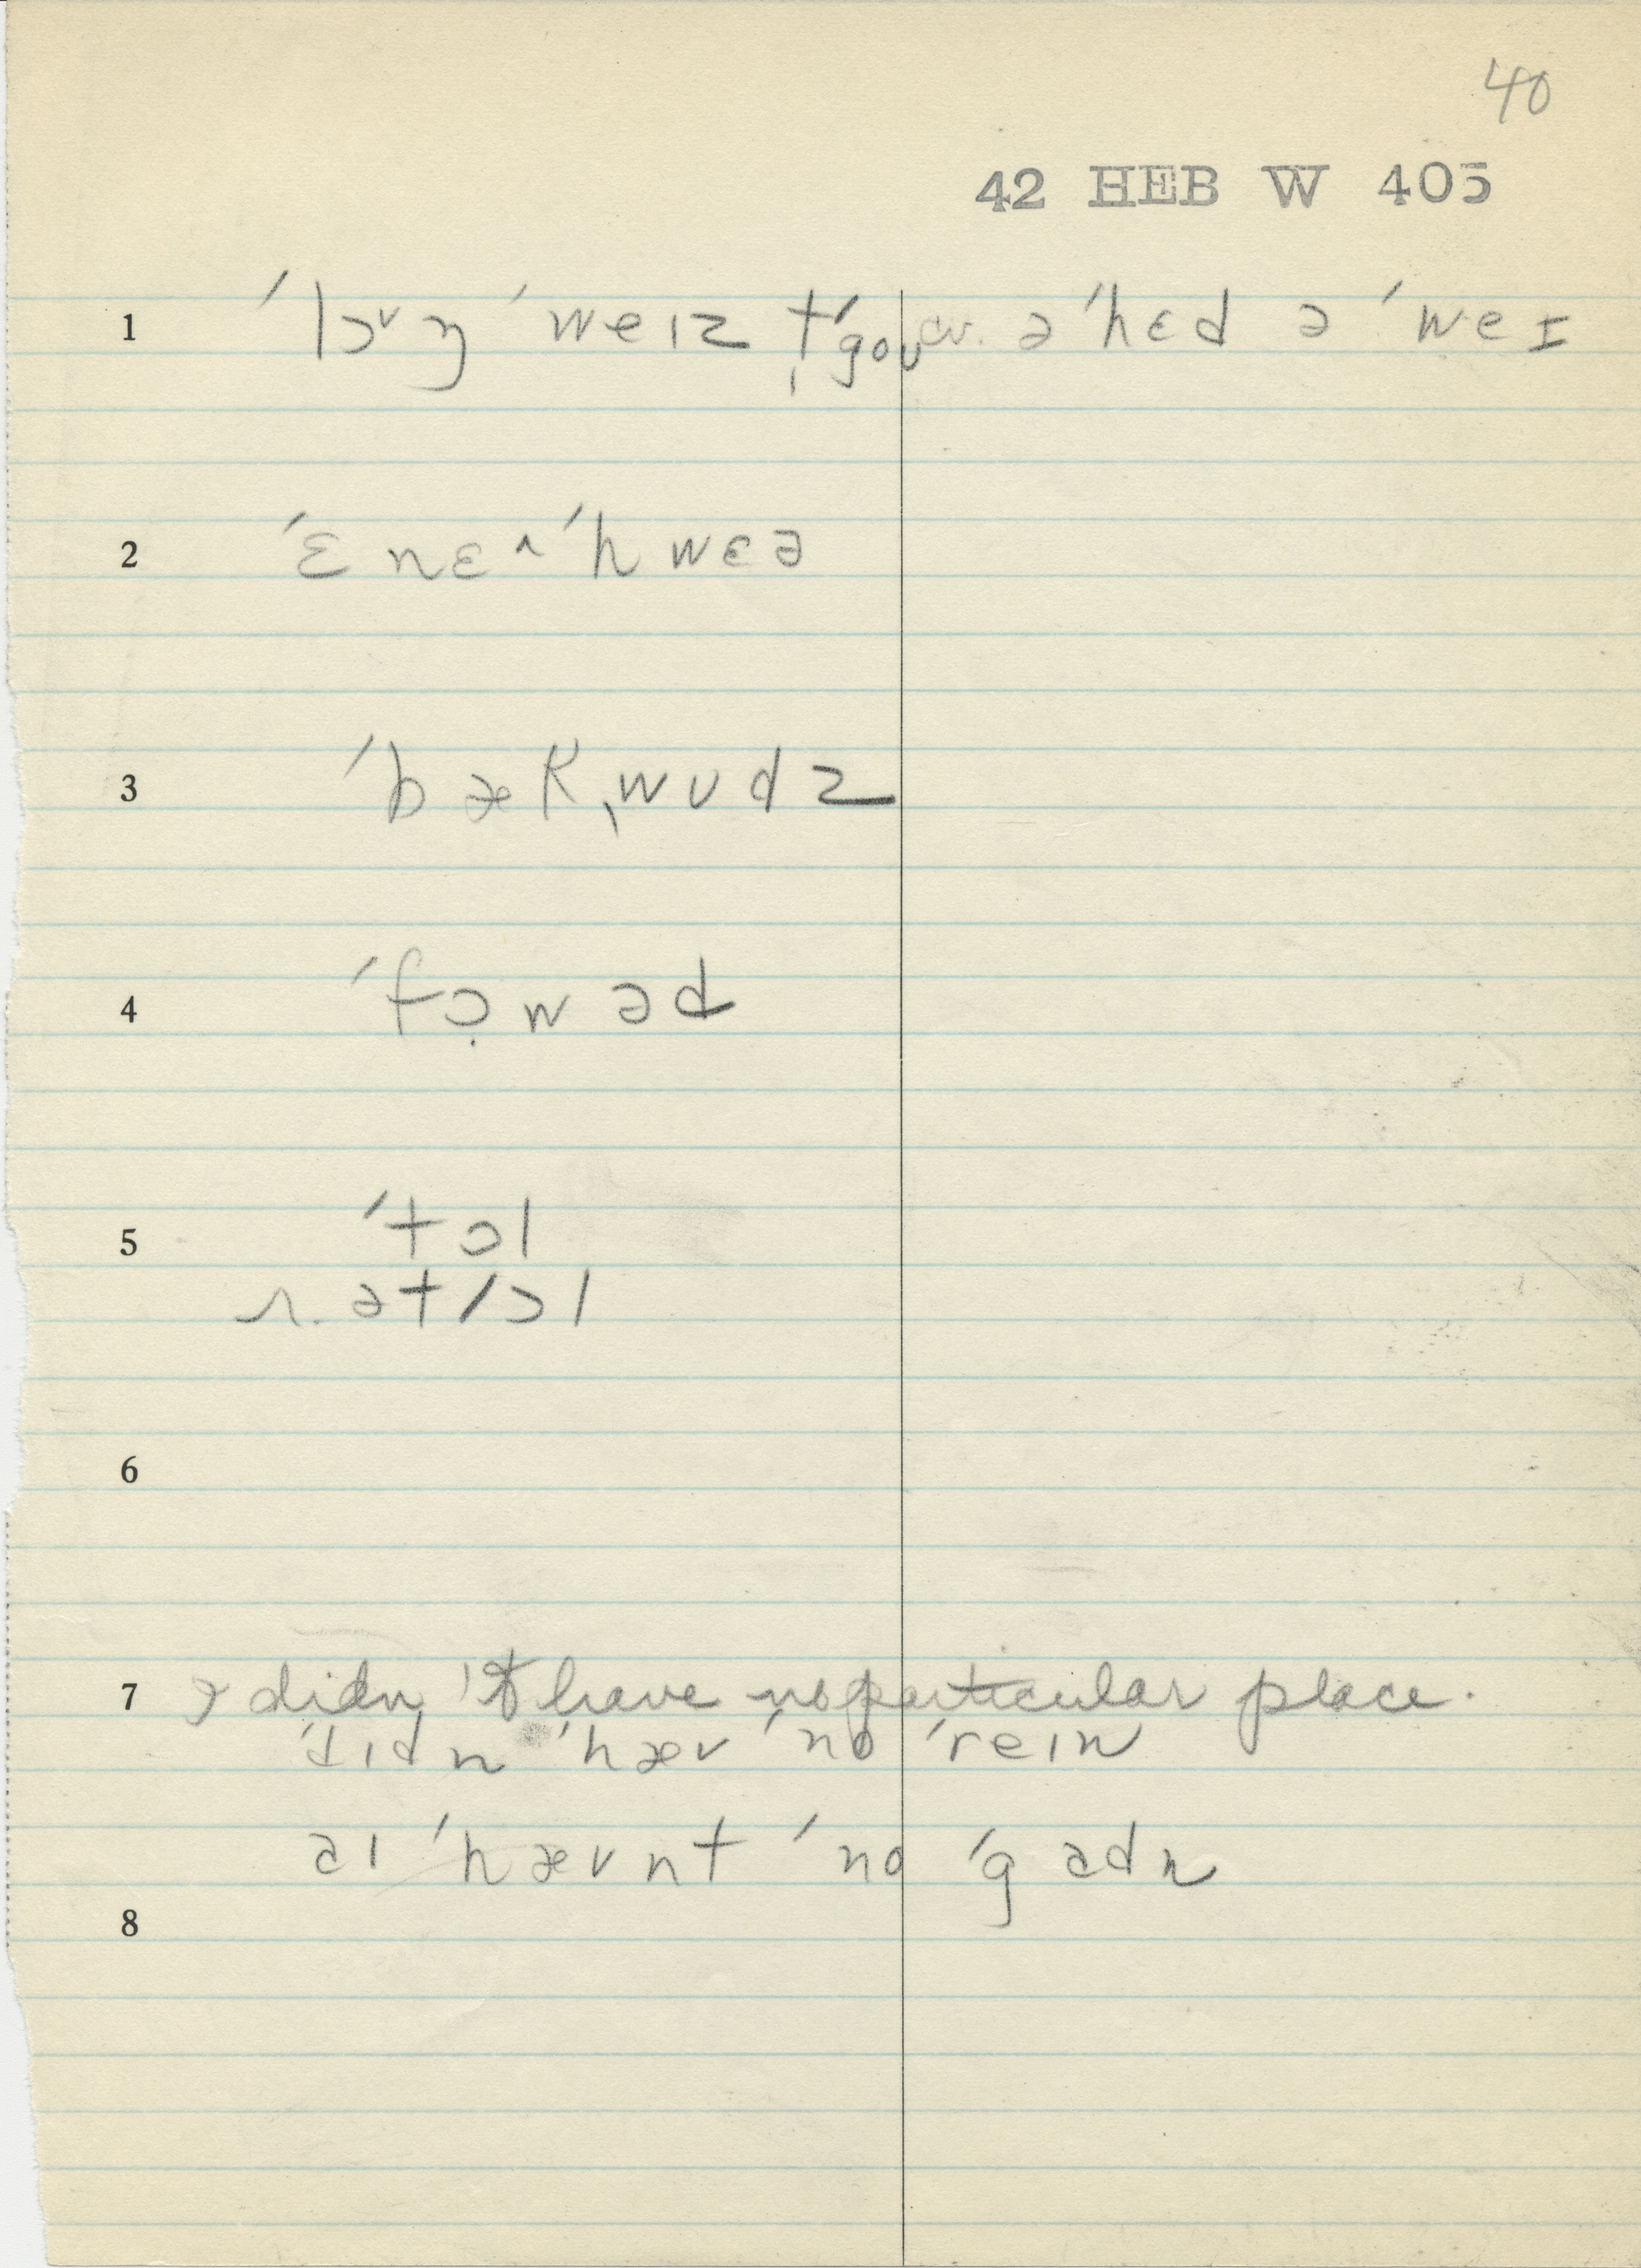 40
42 HEB W 405
1 ˈlɔ˅ŋ ˈweɪz t̩ˈgoʊ cv. əˈhɛd ə ˈweɪ
2 ˈɛnɛ˄ ˈhwɛə
3 ˈbækˌwʊdz
4 ˈfɔ̣wəd
5 ˈtɔl
r. ətˈɔl
6
7 I didn't have no particular place.
ˈdɪdn ˈhæv ˈno ˈreɪn
aɪ ˈhævnt ˈno ˈgadn
8